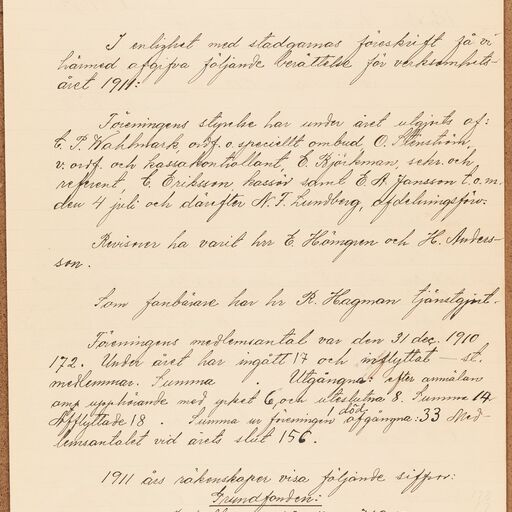 I enlighet med stadgarnas föreskrift få vi
härmed afgifva följande berättelse för verksamhets-
året 1911:
Föreningens styrelse har under året utgjorts af:
C. P. Wahlmark, ordf. o. speciellt ombud, O. Stenström,
v. ordf. och kassakontrollant, E. Björkman, sekr. och
referent, C. Eriksson kassör samt E. A. Jansson t.o.m.
den 4 juli och därefter N. F. Lundberg, afdelningsför.
Revisorer ha varit hrr E. Hömgren och H. Anders-
son.
Som fanbärare har hr R. Hagman tjänstgjort.
Föreningens medlemsantal var den 31 dec. 1910
172. Under året har ingått 17 och inflyttat — st.
medlemmar. Summa . Utgångna: efter anmälan
om upphörande med yrket 6, och uteslutna 8. Summa 14
Afflyttade 18. Summa ur föreningen 1 död afgångna: 33 Med-
lemsantalet vid årets slut 156.
1911 års räkenskaper visa följande siffror:
Grundfonden: